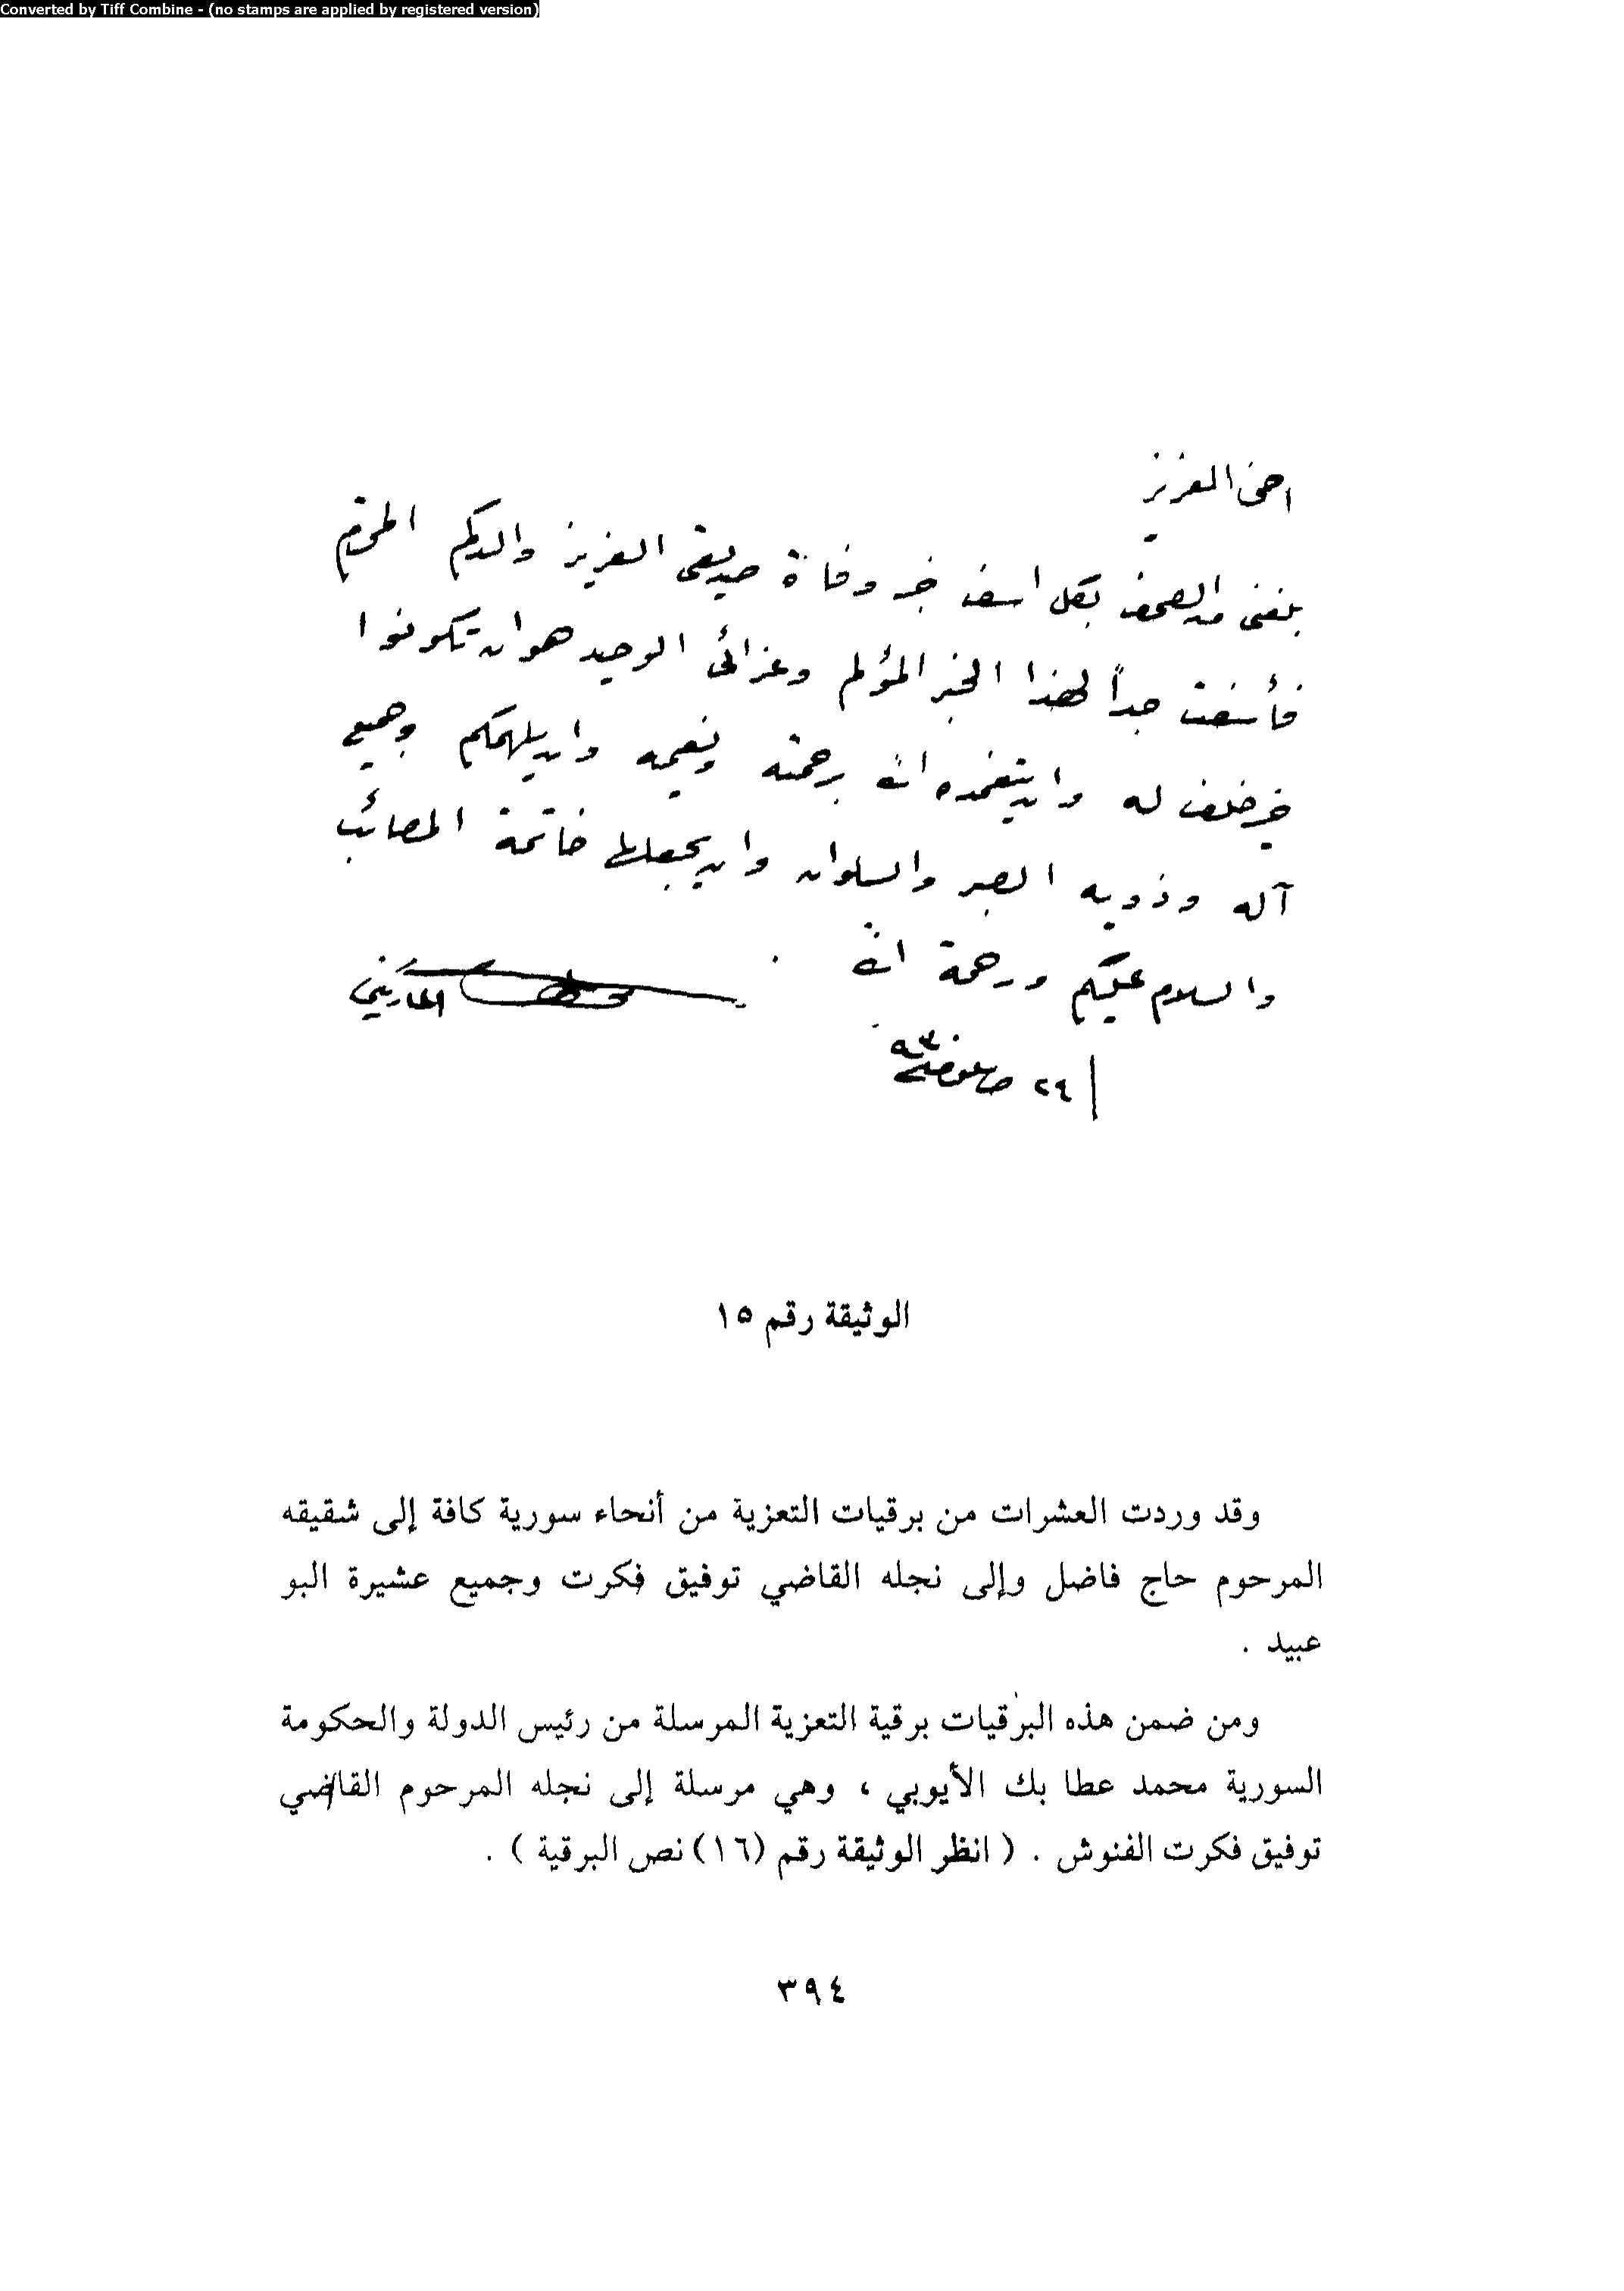 Converted by Tiff Combine - (no stamps are applied by registered version)
اخي العزيز
بلغني من الصحف بكل اسف خبر وفاة صديقي العزيز والدكم المحترم
فأسفت جداً لهذا الخبر المؤلم وعزائي الوحيد هو ان تكونوا
خير خلف له وان يتغمده الله برحمته ونعيمه وان يلهمكم وجميع
آله وذويه الصبر والسلوان وان يجعلها خاتمة المصائب
والسلام عليكم ورحمة الله .
٢٩
الوثيقة رقم ١٥
وقد وردت العشرات من برقيات التعزية من أنحاء سورية كافة إلى شقيقه
المرحوم حاج فاضل وإلى نجله القاضي توفيق فكرت وجميع عشيرة البو
عبيد .
ومن ضمن هذه البرقيات برقية التعزية المرسلة من رئيس الدولة والحكومة
السورية محمد عطا بك الأيوبي ، وهي مرسلة إلى نجله المرحوم القاضي
توفيق فكرت الفنوش . ( انظر الوثيقة رقم (١٦) نص البرقية ) .
٣٩٤